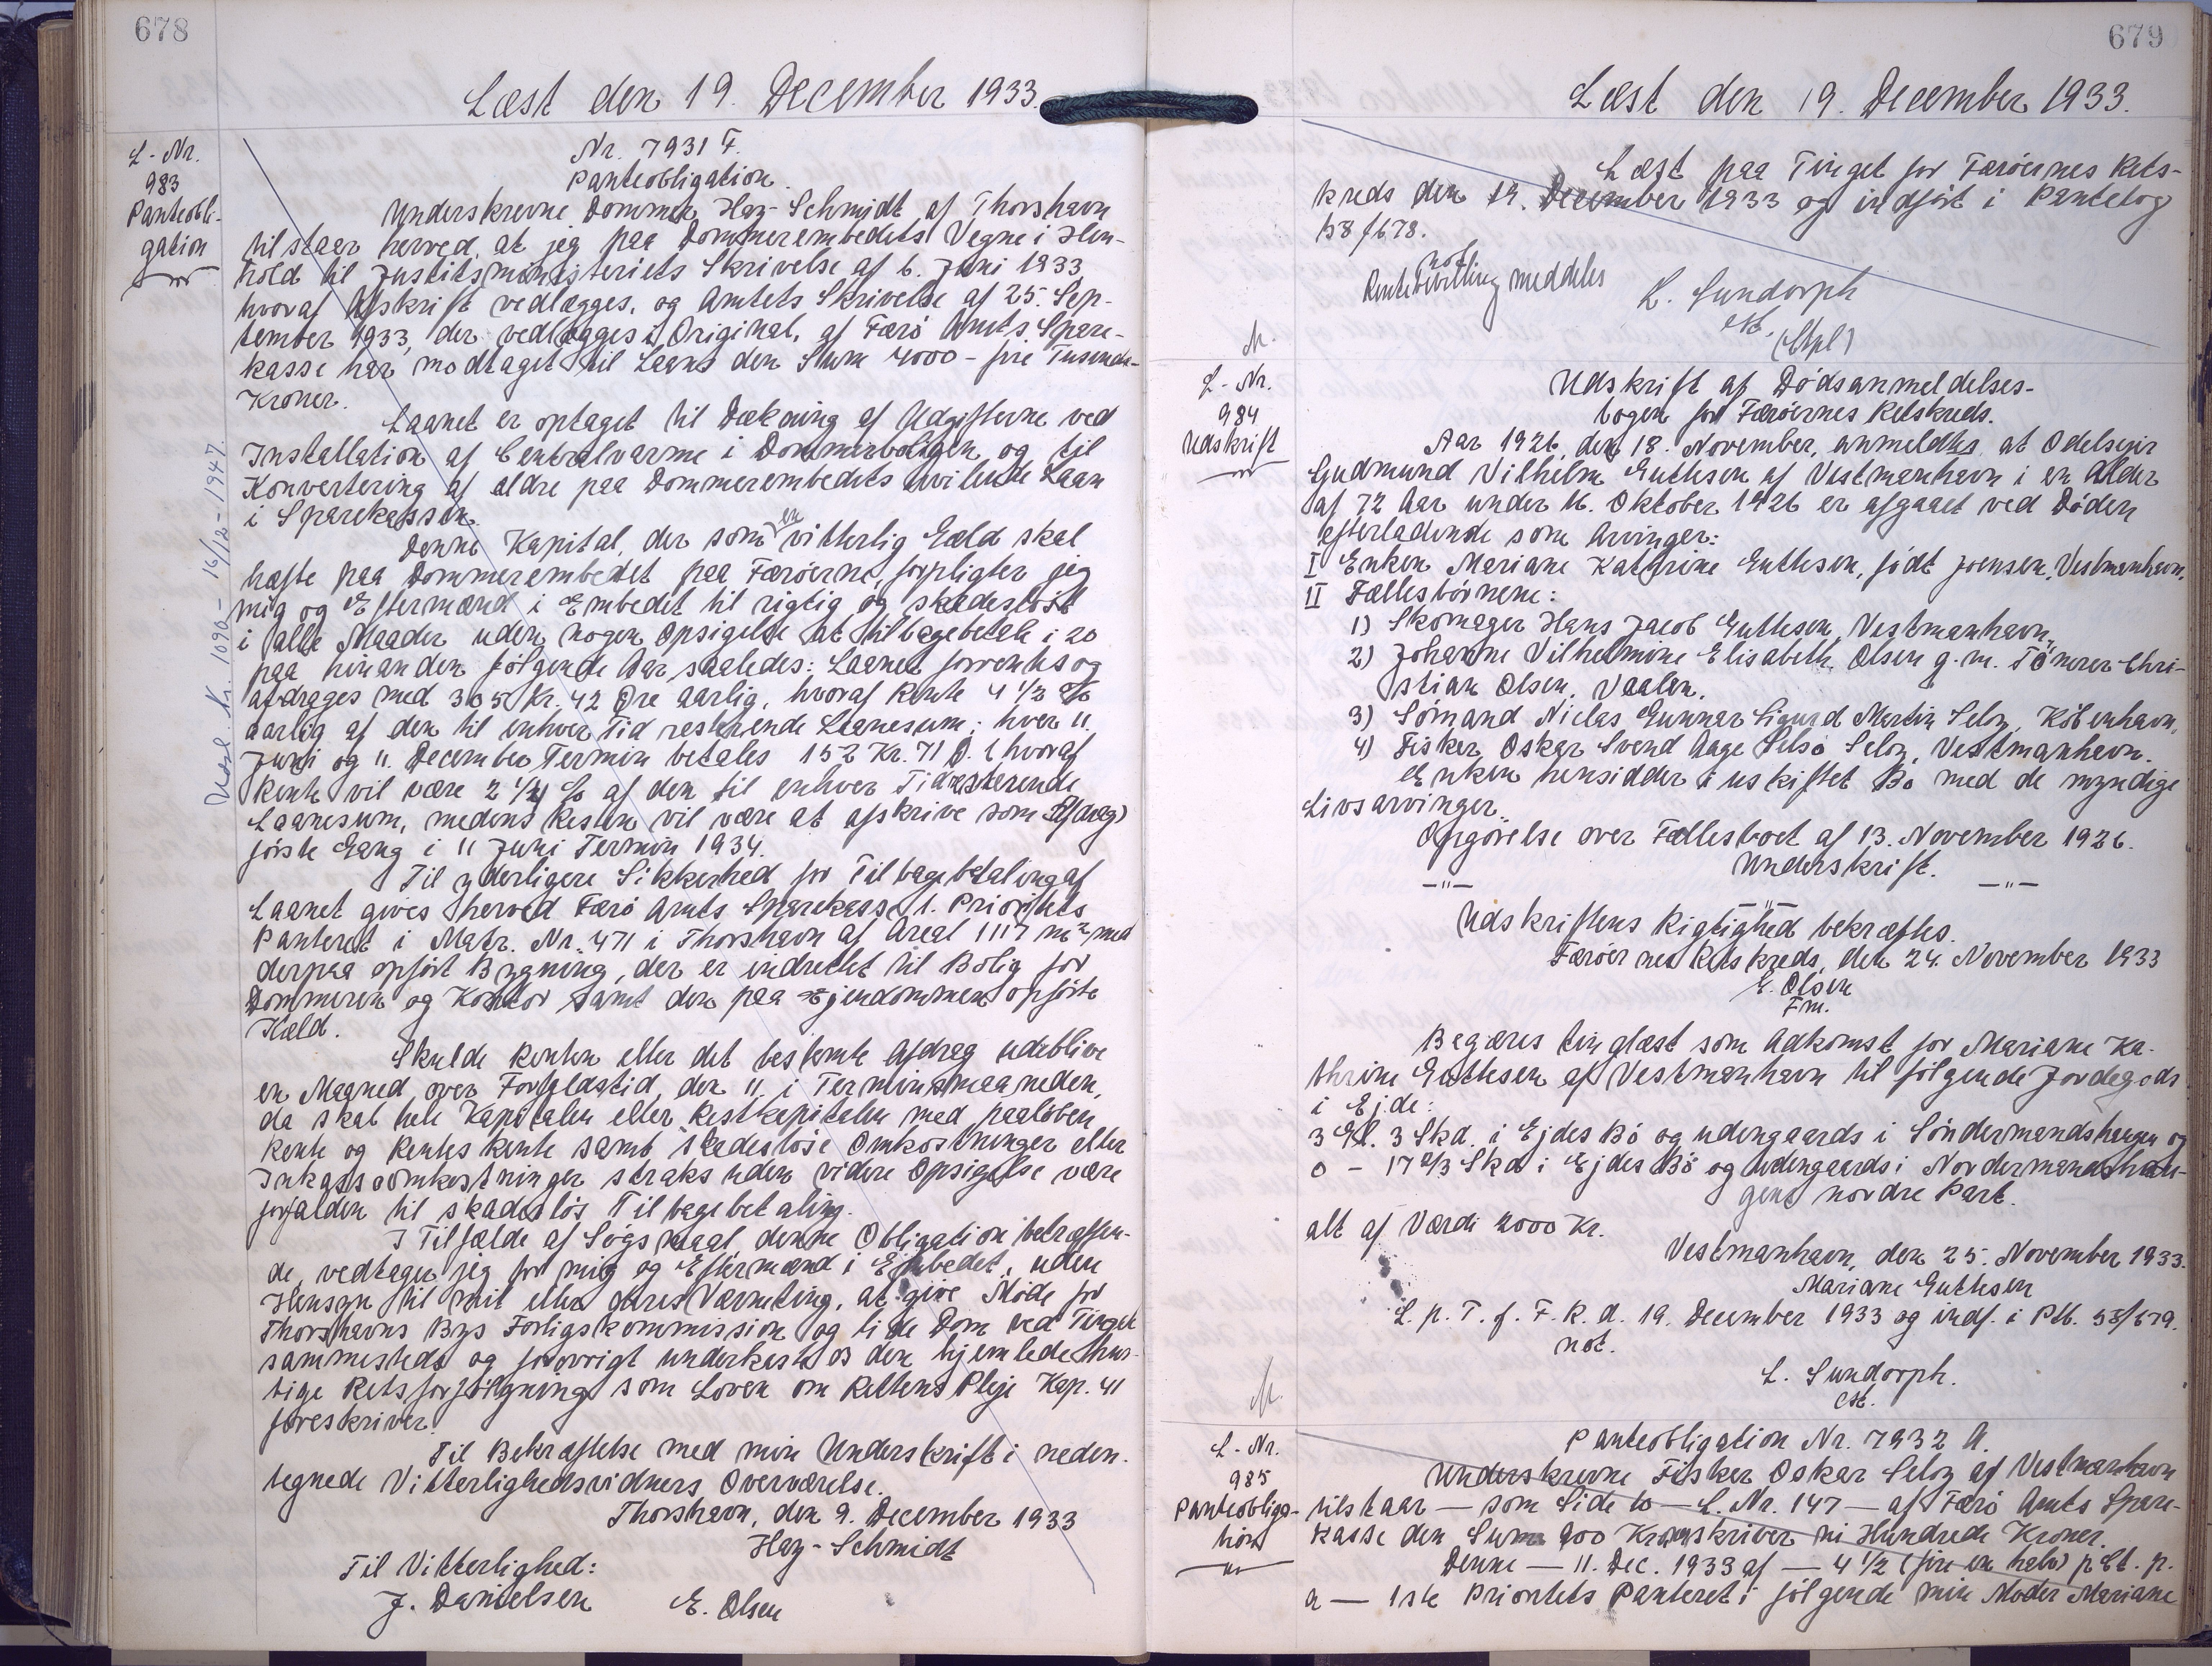 678
Læst den 19. December 1933.
L-Nr.
983
Panteobli-
gation
Nr. 7931 F.
Panteobligation.
Underskrevne Dommer Hay-Schmidt af Thorshavn
tilstaar herved, at jeg paa Dommerembedets Vegne i Hen-
hold til Justitsministeriets Skrivelse af 6. Juni 1933
hvoraf Afskrift vedlægges, og Amtets Skrivelse af 25. Sep-
tember 1933, der vedlægges i Original, af Færö Amts Spare-
kasse har modtaget til Laans den Sum 4000 - fire Tusinde -
Kroner.
Laanet er optaget til Dækning af Udgifterne ved
Installation af Centralvarme i Dommerboligen og til
Konvertering af ældre paa Dommerembedets hvilende Laan
i Sparekassen.
Denne Kapital, der som en vitterlig Gæld skal
hæfte paa Dommerembedet paa Færöerne, forpligter jeg
mig og Eftermænd i Embedet til rigtig og skadeslöst
i alle Maader uden nogen Opsigelse at tilbagebetale i 20
paa hinanden fölgende Aar saaledes: Laanet forrentes og
afdrages med 305 Kr. 42 Öre aarlig, hvoraf Rente 4 1/2 %
aarlig af den til enhver Tid resterende Laanesum; hver 11.
Juni og 11. December Termin betales 152 Kr. 71 Ö. (hvoraf
Rente vil være 2 1/4 % af den til enhver Tid resterende
Laanesum, medens Resten vil være at afskrive som Afdrag)
förste Gang i 11 Juni Termin 1934.
Til yderligere Sikkerhed for Tilbagebetaling af
Laanet gives herved Færö Amts Sparekasse 1. Prioritets
Panteret i Matr. Nr. 471 i Thorshavn af Areal 1117 m² med
derpaa opfört Bygning, der er indrettet til Bolig for
Dommeren og Kontor samt den paa Ejendommen opförte
Kæld.
Skulde Renten eller det bestemte Afdrag udeblive
en Maaned over Forfaldstid, den 11. i Terminsmaaneden,
da skal hele Kapitalen eller Restkapitalen med paalöben
Rente og Rentes Rente samt skadeslöse Omkostninger eller
Inkassoomkostninger straks uden videre Opsigelse være
forfalden til skadeslös Tilbagebetaling.
I Tilfælde af Sögsmaal denne Obligation betræffen-
de, vedtager jeg for mig og Eftermænd i Embedet, uden
Hensyn til mit eller deres Værneting, at give Möde for
Thorshavns Bys Forligskommission og lide Dom ved Tinget
sammesteds og forövrigt underkaste os den hjemlede hur-
tige Retsforfölgning som Loven om Rettens Pleje Kap. 41
foreskriver.
Til Bekræftelse med min Underskrift i neden-
tegnede Vitterlighedsvidners Overværelse.
Thorshavn, den 9. December 1933
Hay-Schmidt
Til Vitterlighed:
J. Danielsen E. Olsen
Kr. 1090 - 16/12 - 1947.
679
Læst den 19. December 1933.
Læst paa Tinget for Færöernes Rets-
kreds den 19. December 1933 og indfört i Pantebog
58 f 678.
not.
Rentebevilling meddeles
L. Sundorph
cst.
(Stpl)
L-Nr.
984
Udskrift
Udskrift af Dödsanmeldelses-
bogen for Færöernes Retskreds.
Aar 1926, den 18. November, anmeldtes at Odelsejer
Gudmund Vilhelm Guttesen af Vestmanhavn i en Alder
af 72 Aar under 16. Oktober 1926 er afgaaet ved Döden
efterladende som Arvinger:
I Enken Mariane Kathrine Guttesen, födt Joensen, Vestmanhavn,
II Fællesbörnene:
1) Skomager Hans Jacob Guttesen, Vestmanhavn,
2) Johanne Vilhelmine Elisabeth Olsen g. m. Tömrer Chri-
stian Olsen, Vaalen.
3) Sömand Niclas Gunnar Sigurd Martin Seloy, Köbenhavn,
4) Fisker Oskar Svend Aage Selsö Seloy, Vestmanhavn.
Enken hensidder i uskiftet Bo med de myndige
Livsarvinger.
Opgörelse over Fællesboet af 13. November 1926.
Underskrift.
—"— —"— —"—
Udskriftens Rigtighed bekræftes.
Færöernes Retskreds, den 24. November 1933
E. Olsen
Fm.
Begæres tinglæst som Adkomst for Mariane Ka-
thrine Guttesen af Vestmanhavn til fölgende Jordegods
i Ejde:
3 Gl. 3 Skd. i Ejdes Bö og udengaards i Söndermandshaugen og
0 - 17 2/3 Skd i Ejdes Bö og udengaards i Nordermandshau-
gens nordre Part.
alt af Værdi 2000 Kr.
Vestmanhavn, den 25. November 1933.
Mariane Guttesen
L. p. T. f. F. R. d. 19. December 1933 og indf. i Ptb. 58/679.
not.
L. Sundorph.
cst.
L-Nr.
985
Panteobliga-
tion
Panteobligation Nr. 7932 A.
Underskrevne Fisker Oskar Seloy af Vestmanhavn
tilstaar — som Side 10 — L. Nr. 147 — af Færö Amts Spare-
kasse den Sum 900 Kroner skriver ni Hundrede Kroner.
Denne — 11. Dec. 1933 af — 4 1/2 (fire en halv) p Ct. p.
a — 1ste Prioritets Panteret i fölgende min Moder Mariane